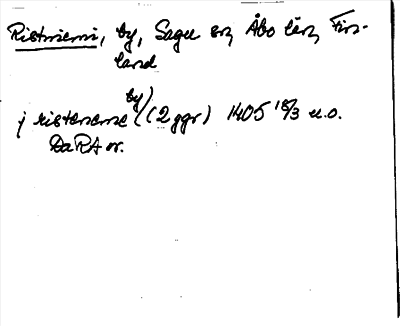 Ristniemi, by, Sagu sn, Åbo län, Fin-
land
by)
j ristenieme ( (2 ggr) 1405 18/3 u.o.
DaRA or.